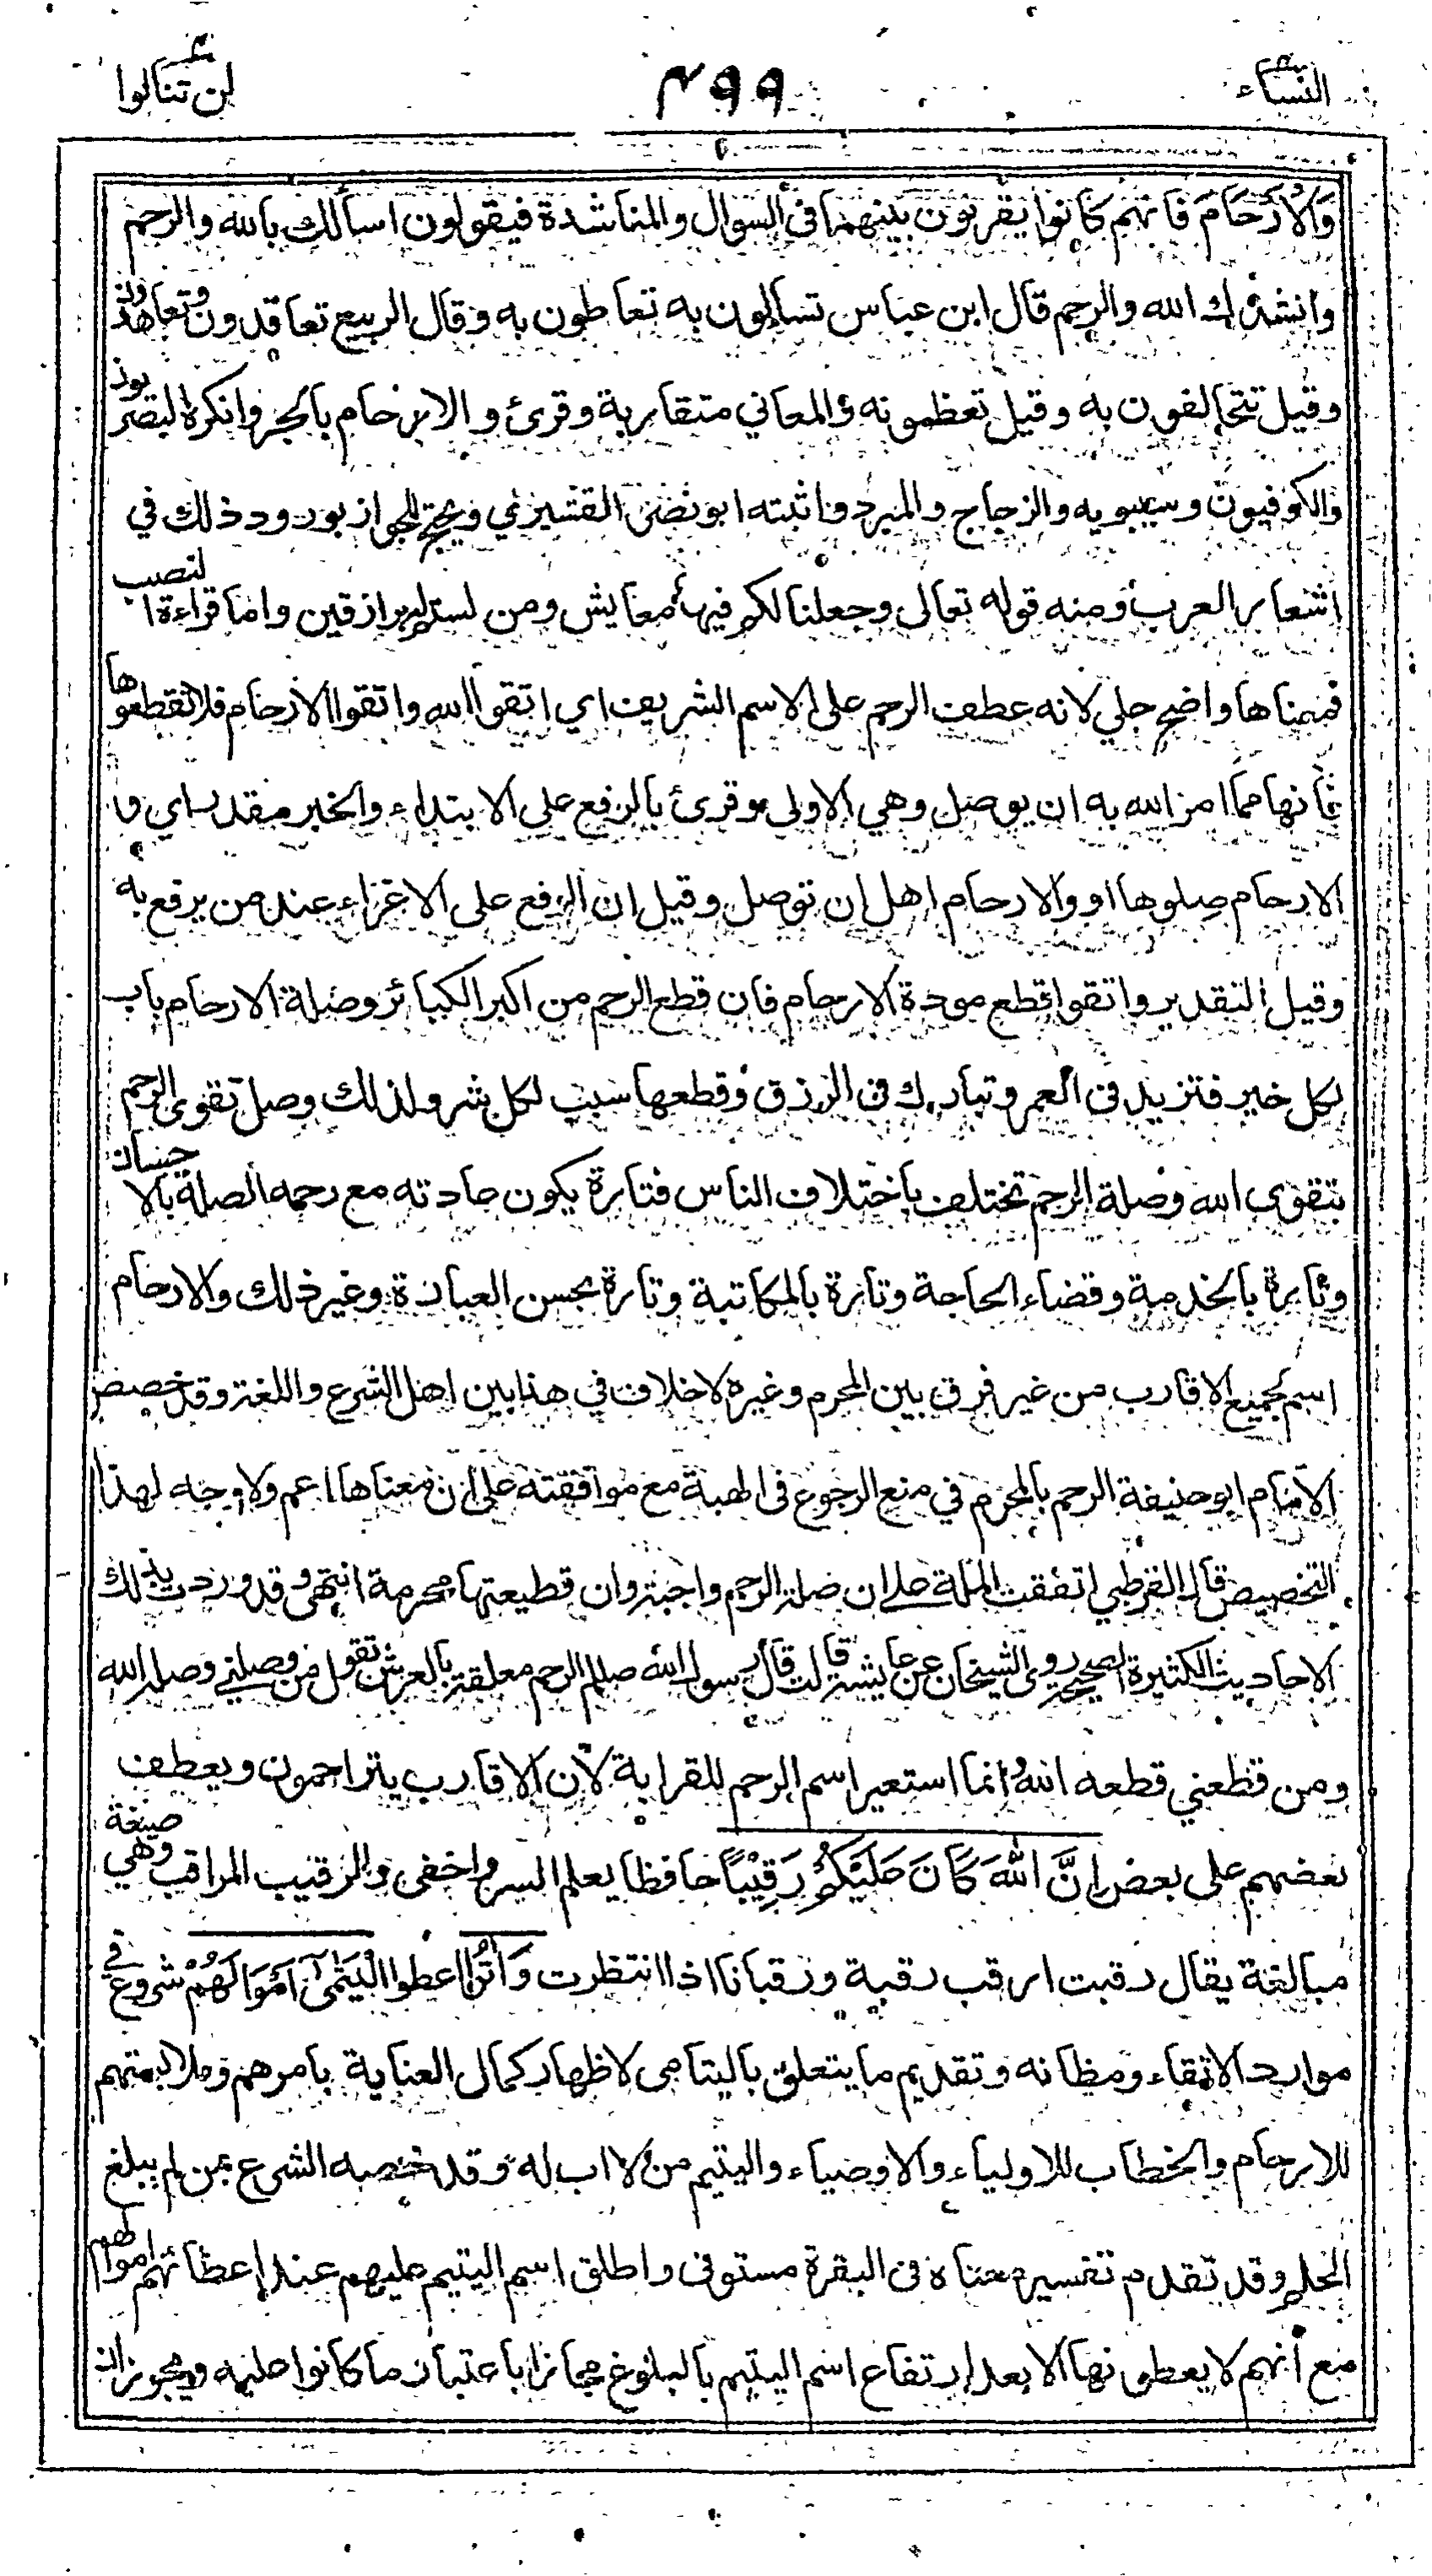 النساء ٤٩٩ لن تنالوا
وَالْاَرْحَامَ فانهم كانوا يقرنون بينهما في السوال والمناشدة فيقولون اسألك بالله والرحم
وانشدك الله والرحم قال ابن عباس تسالون به تعاطون به وقال الربيع تعاقدون وتعاهدون
وقيل تتحالفون به وقيل تعظمونه والمعاني متقاربة وقرئ والارحام بالجر وانكره البصريون
والكوفيون وسيبويه والزجاج والمبرد واثبته ابو نصر القشيري ويحتج للجواز بورود ذلك في
اشعار العرب ومنه قوله تعالى وجعلنا لكم فيها معايش ومن لستم له برازقين واما قراءة النصب
فمعناها واضح جلي لانه عطف الرحم على الاسم الشريف اي اتقوا الله واتقوا الارحام فلا تقطعوها
فانها مما امر الله به ان يوصل وهي الاولى وقرئ بالرفع على الابتداء والخبر مقدر اي و
الارحام صلوها او والارحام اهل ان توصل وقيل ان الرفع على الاغراء عند من يرفع به
وقيل التقدير واتقوا قطع مودة الارحام فان قطع الرحم من اكبر الكبائر وصلة الارحام باب
لكل خير فتزيد في العمر وتبارك في الرزق وقطعها سبب لكل شر ولذلك وصل تقوى الرحم
بتقوى الله وصلة الرحم تختلف باختلاف الناس فتارة يكون عادته مع رحمه الصلة بالاحسان
وتارة بالخدمة وقضاء الحاجة وتارة بالمكاتبة وتارة بحسن العبارة وغير ذلك والارحام
اسم لجميع الاقارب من غير فرق بين المحرم وغيره لا خلاف في هذا بين اهل الشرع واللغة وقد خصص
الامام ابو حنيفة الرحم بالمحرم في منع الرجوع في الهبة مع موافقته على ان معناها اعم ولا وجه لهذا
التخصيص قال القرطبي اتفقت الملة على ان صلة الرحم واجبة وان قطيعتها محرمة انتهى وقد وردت بذلك
الاحاديث الكثيرة الصحيحة روى الشيخان عن عايشة قالت قال رسول الله صللم الرحم معلقة بالعرش تقول من وصلني وصله الله
ومن قطعني قطعه الله وانما استعير اسم الرحم للقرابة لان الاقارب يتراحمون ويعطف
بعضهم على بعض اِنَّ اللّٰهَ كَانَ عَلَيْكُمْ رَقِيْبًا حافظا يعلم السر واخفى والرقيب المراقب وهي صيغة
مبالغة يقال رقبت ارقب رقبة ورقبانا اذا انتظرت وَاٰتُوا اعطوا الْيَتٰمٰى اَمْوَالَهُمْ شروع في
موارد الاتقاء ومظانه وتقديم ما يتعلق باليتامى لاظهار كمال العناية بامرهم وملابستهم
للارحام والخطاب للاولياء والاوصياء واليتيم من لا اب له وقد خصه الشرع بمن لم يبلغ
الحلم وقد تقدم تفسير معناه في البقرة مستوفى واطلق اسم اليتيم عليهم عند إعطائهم اموالهم
مع أنهم لا يعطونها الا بعد ارتفاع اسم اليتيم بالبلوغ مجازا باعتبار ما كانوا عليه ويجوز ان